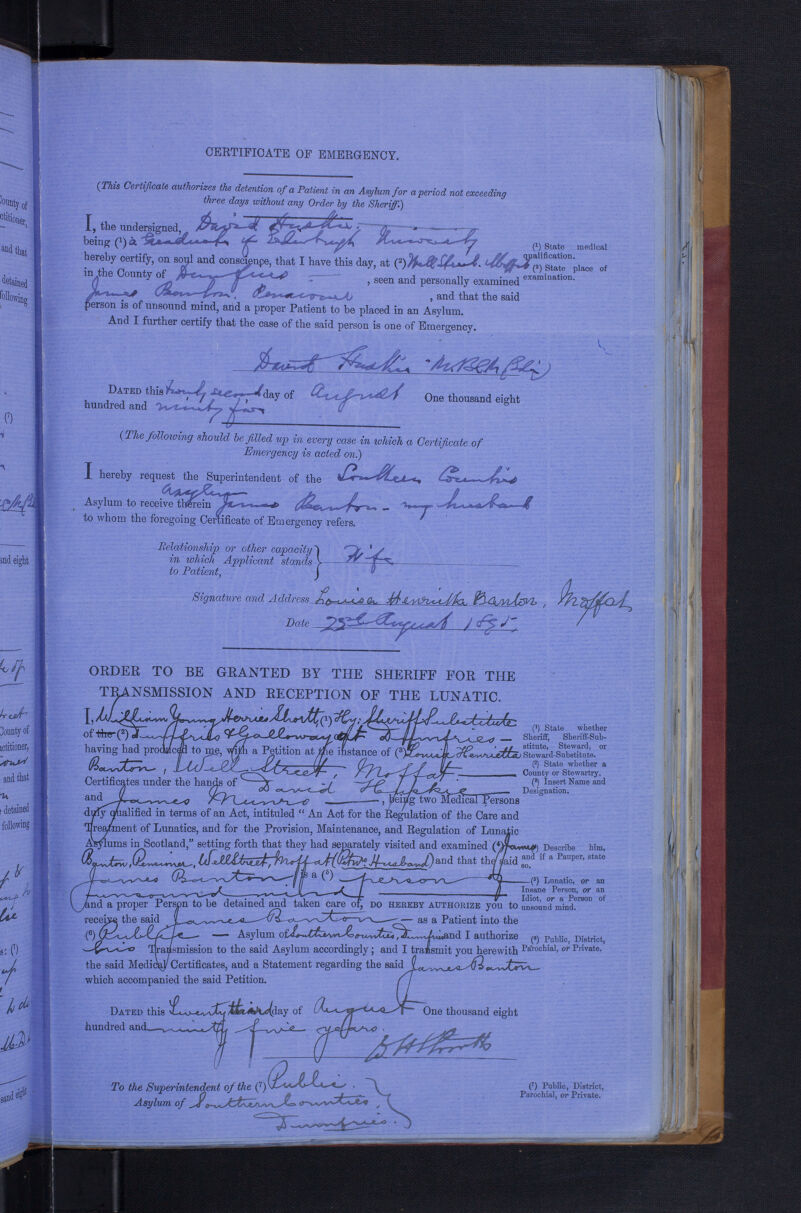 CERTIFICATE OF EMERGENCY.
(This Certificate authorizes the detention of a Patient in an Asylum for a period not exceeding
three days without any Order by the Sheriff.)
I, the undersigned, David Huskie,
being (¹) a Graduate of Edinburgh University
hereby certify, on soul and conscience, that I have this day, at (²) Well Street, Moffat
in the County of Dumfries , seen and personally examined
James Banton , and that the said
person is of unsound mind, and a proper Patient to be placed in an Asylum.
And I further certify that the case of the said person is one of Emergency.
(¹) State medical
qualification.
(²) State place of
examination.
David Huskie M.B.C.M. (Edin)
DATED this twenty second day of August One thousand eight
hundred and ninety five
(The following should be filled up in every case in which a Certificate of
Emergency is acted on.)
I hereby request the Superintendent of the Southern Counties
Asylum
Asylum to receive therein James Banton - my husband
to whom the foregoing Certificate of Emergency refers.
Relationship or other capacity
in which Applicant stands
to Patient,
Wife
Signature and Address Louisa Henrietta Banton, Moffat
Date 23d August 1895
ORDER TO BE GRANTED BY THE SHERIFF FOR THE
TRANSMISSION AND RECEPTION OF THE LUNATIC.
I, William Young Herries Shortt, (¹) Hy: Sheriff Substitute
of the (²) Dumfries & Galloway at Dumfries
having had produced to me, with a Petition at the instance of (³) Louisa Henrietta
Banton, Well Street, Moffat.
Certificates under the hands of David Huskie
and James Munro , being two Medical Persons
duly qualified in terms of an Act, intituled “ An Act for the Regulation of the Care and
Treatment of Lunatics, and for the Provision, Maintenance, and Regulation of Lunatic
Asylums in Scotland,” setting forth that they had separately visited and examined (⁴) James
Banton, Pensioner, Well Street, Moffat (Petrs. Husband) and that the said
James Banton is a (⁵) person of
unsound mind
and a proper Person to be detained and taken care of, DO HEREBY AUTHORIZE you to
receive the said James Banton as a Patient into the
(⁶) Public Asylum of Southern Counties, Dumfries and I authorize
his Transmission to the said Asylum accordingly ; and I transmit you herewith
the said Medical Certificates, and a Statement regarding the said James Banton
which accompanied the said Petition.
(¹) State whether
Sheriff, Sheriff-Sub-
stitute, Steward, or
Steward-Substitute.
(²) State whether a
County or Stewartry.
(³) Insert Name and
Designation.
(⁴) Describe him,
and if a Pauper, state
so.
(⁵) Lunatic, or an
Insane Person, or an
Idiot, or a Person of
unsound mind.
(⁶) Public, District,
Parochial, or Private.
DATED this Twenty third day of August One thousand eight
hundred and ninety five years.
To the Superintendent of the (⁷) Public
Asylum of Southern Counties
Dumfries.
(⁷) Public, District,
Parochial, or Private.